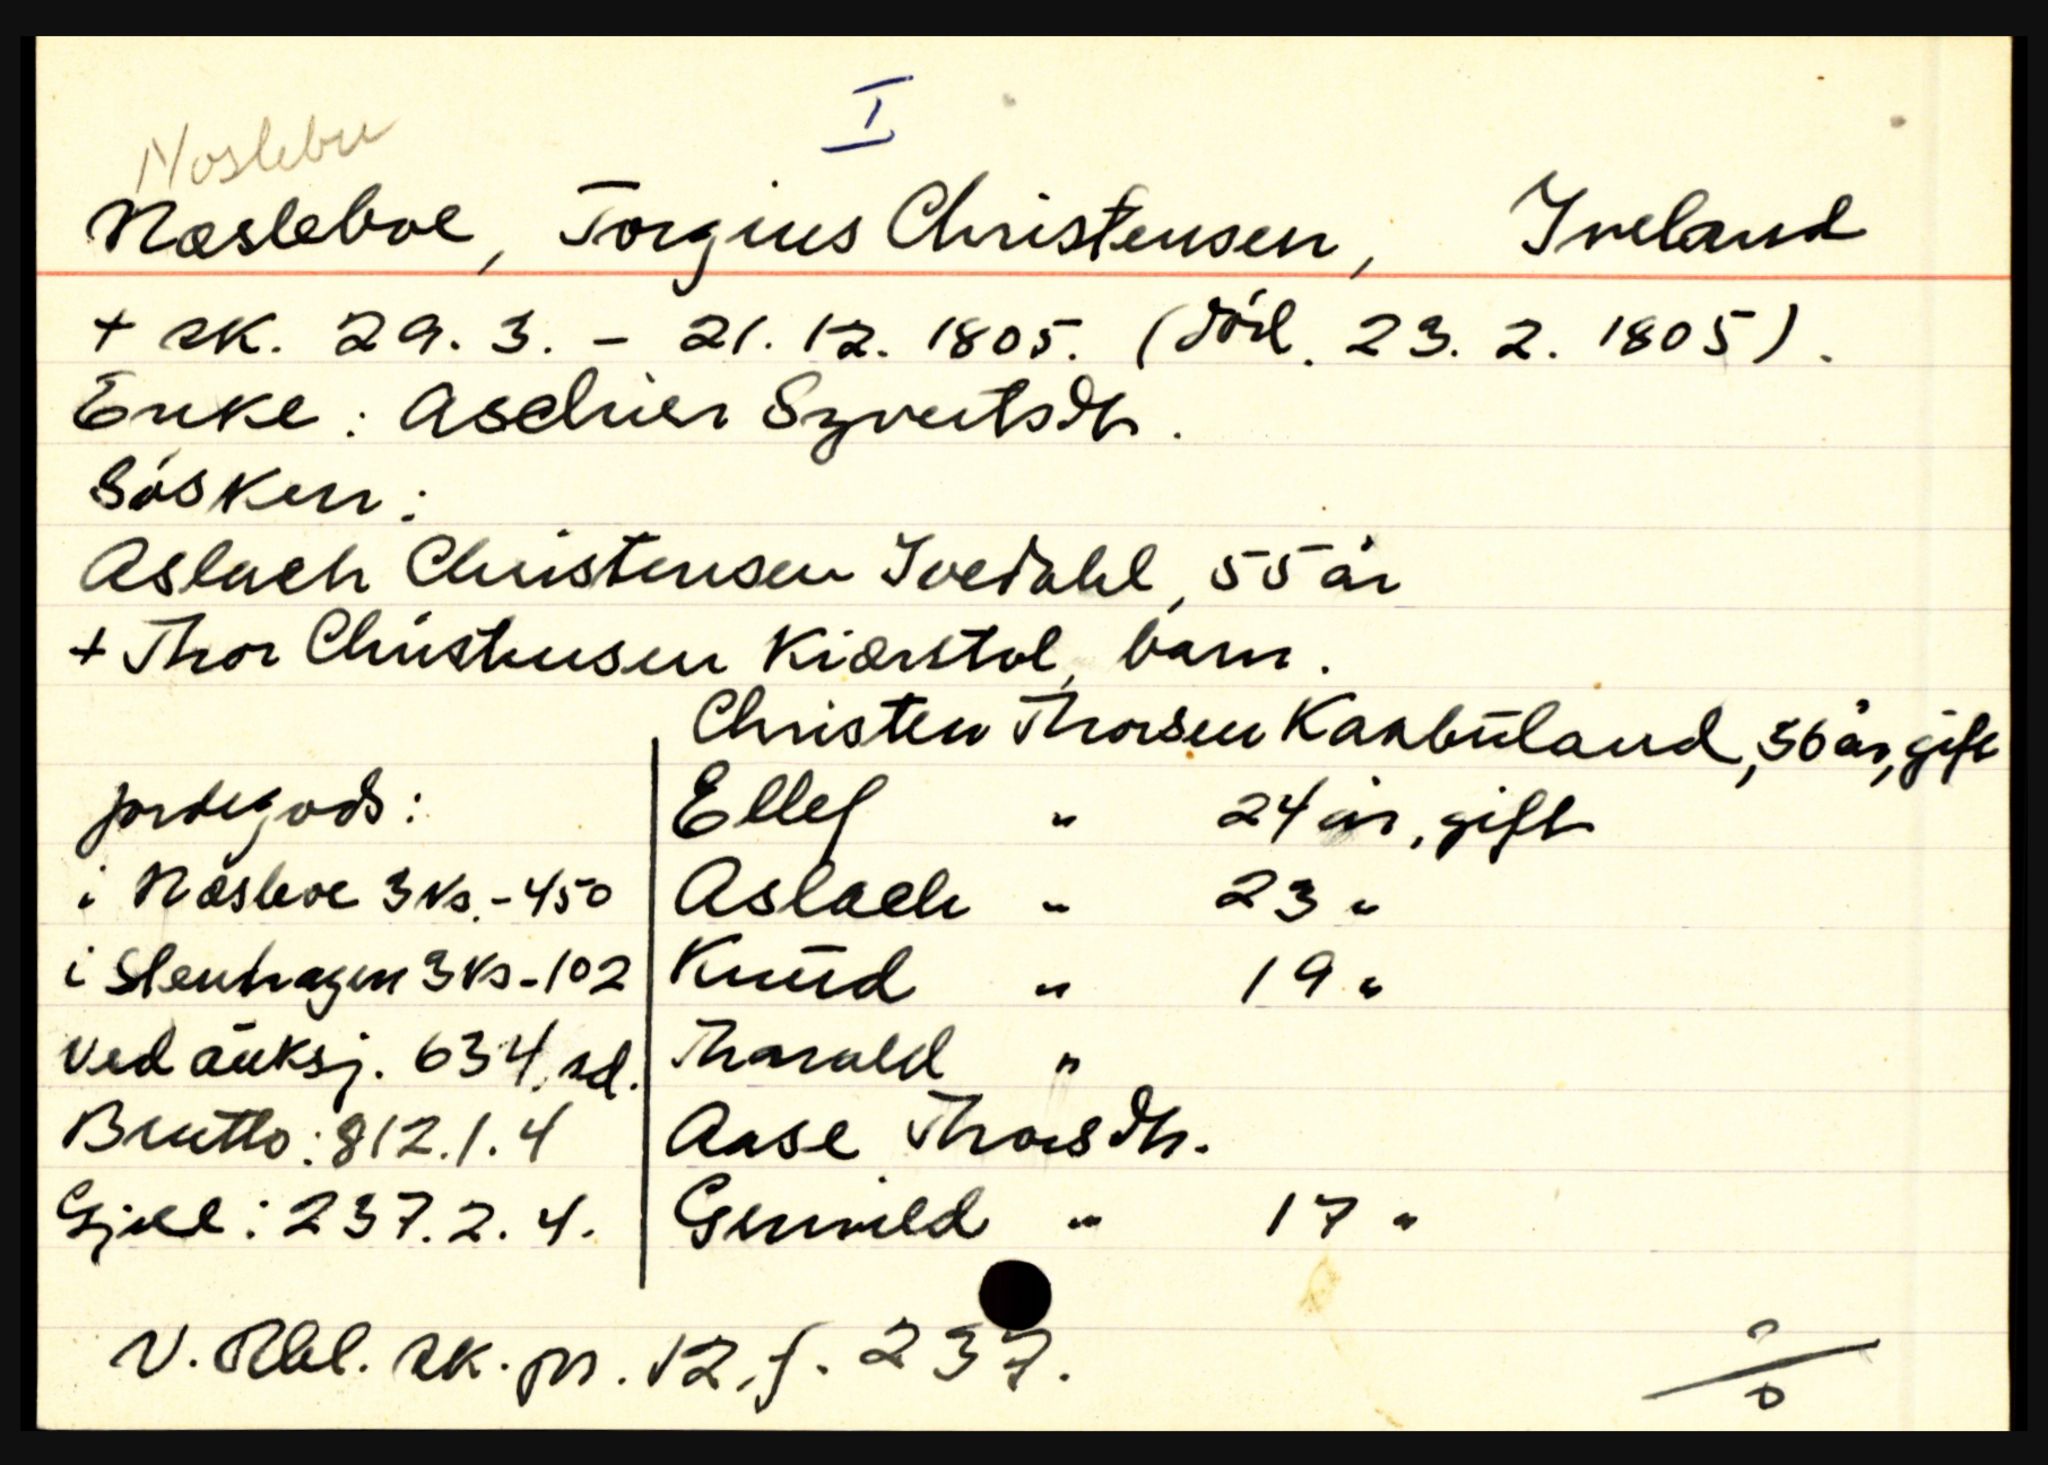 I
Noslebu
Næsleboe, Torgius Christensen, Iveland
+ sk. 29. 3. - 21. 12. 1805. (död. 23. 2. 1805).
Enke: Aselner Syvertsdtr.
Sösken:
Aslach Christensen Ivedahl, 55 år
+ Thor Christensen Kiærstol, barn.
Christen Thorsen Kaabuland, 36 år, gift
Ellef " 24 år, gift
Aslach " 23 "
Knud " 19 "
Tharald "
Aase Thorsdtr.
Gunvild " 17 "
jordegods:
i Næsleboe 3 ks. - 450
i Stenhagen 3 ks - 102
ved auksj. 634 rd.
Brutto: 812.1.4
Gjeld: 237.2.4.
N. Rbl. sk. pr. 12, f. 237.